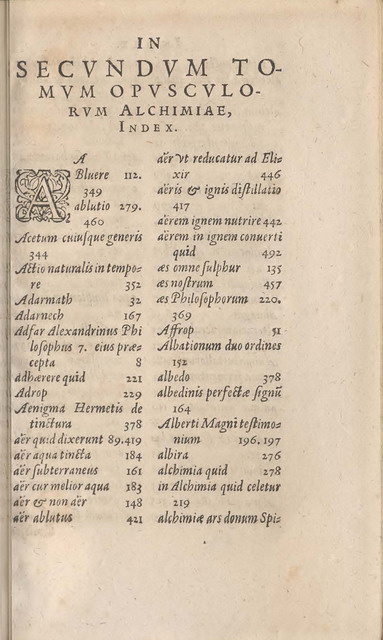 IN
SECVNDVM TO-
MVM OPVSCVLO-
RVM ALCHIMIAE,
INDEX.
A
ABluere 112.
349
ablutio 279.
460
Acetum cuiusque generis
344
Actio naturalis in tempo-
re 352
Adarmath 32
Adarnech 167
Adfar Alexandrinus Phi
losophus 7. eius præ-
cepta 8
adhærere quid 221
Adrop 229
Aenigma Hermetis de
tinctura 378
aër quid dixerunt 89.419
aër aqua tincta 184
aër subterraneus 161
aër cur melior aqua 183
aër & non aër 148
aër ablutus 421
aër vt reducatur ad Eli-
xir 446
aëris & ignis distillatio
417
aërem ignem nutrire 442
aërem in ignem conuerti
quid 492
æs omne sulphur 135
æs nostrum 457
æs Philosophorum 220.
369
Affrop 51
Albationum duo ordines
152
albedo 378
albedinis perfectæ signũ
164
Alberti Magni testimo-
nium 196.197
albira 276
alchimia quid 278
in Alchimia quid celetur
219
alchimiæ ars donum Spi-